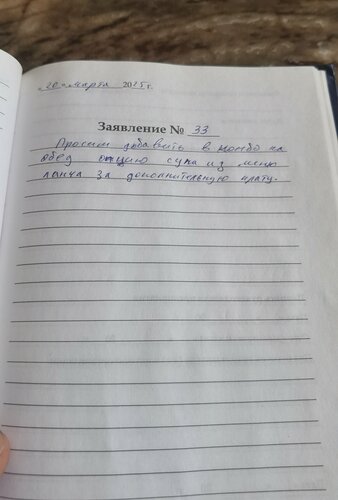 «20» марта 2025 г.
Заявление № 33
Просим добавить в комбо на
обед опцию супа из меню
ланча за дополнительную плату.